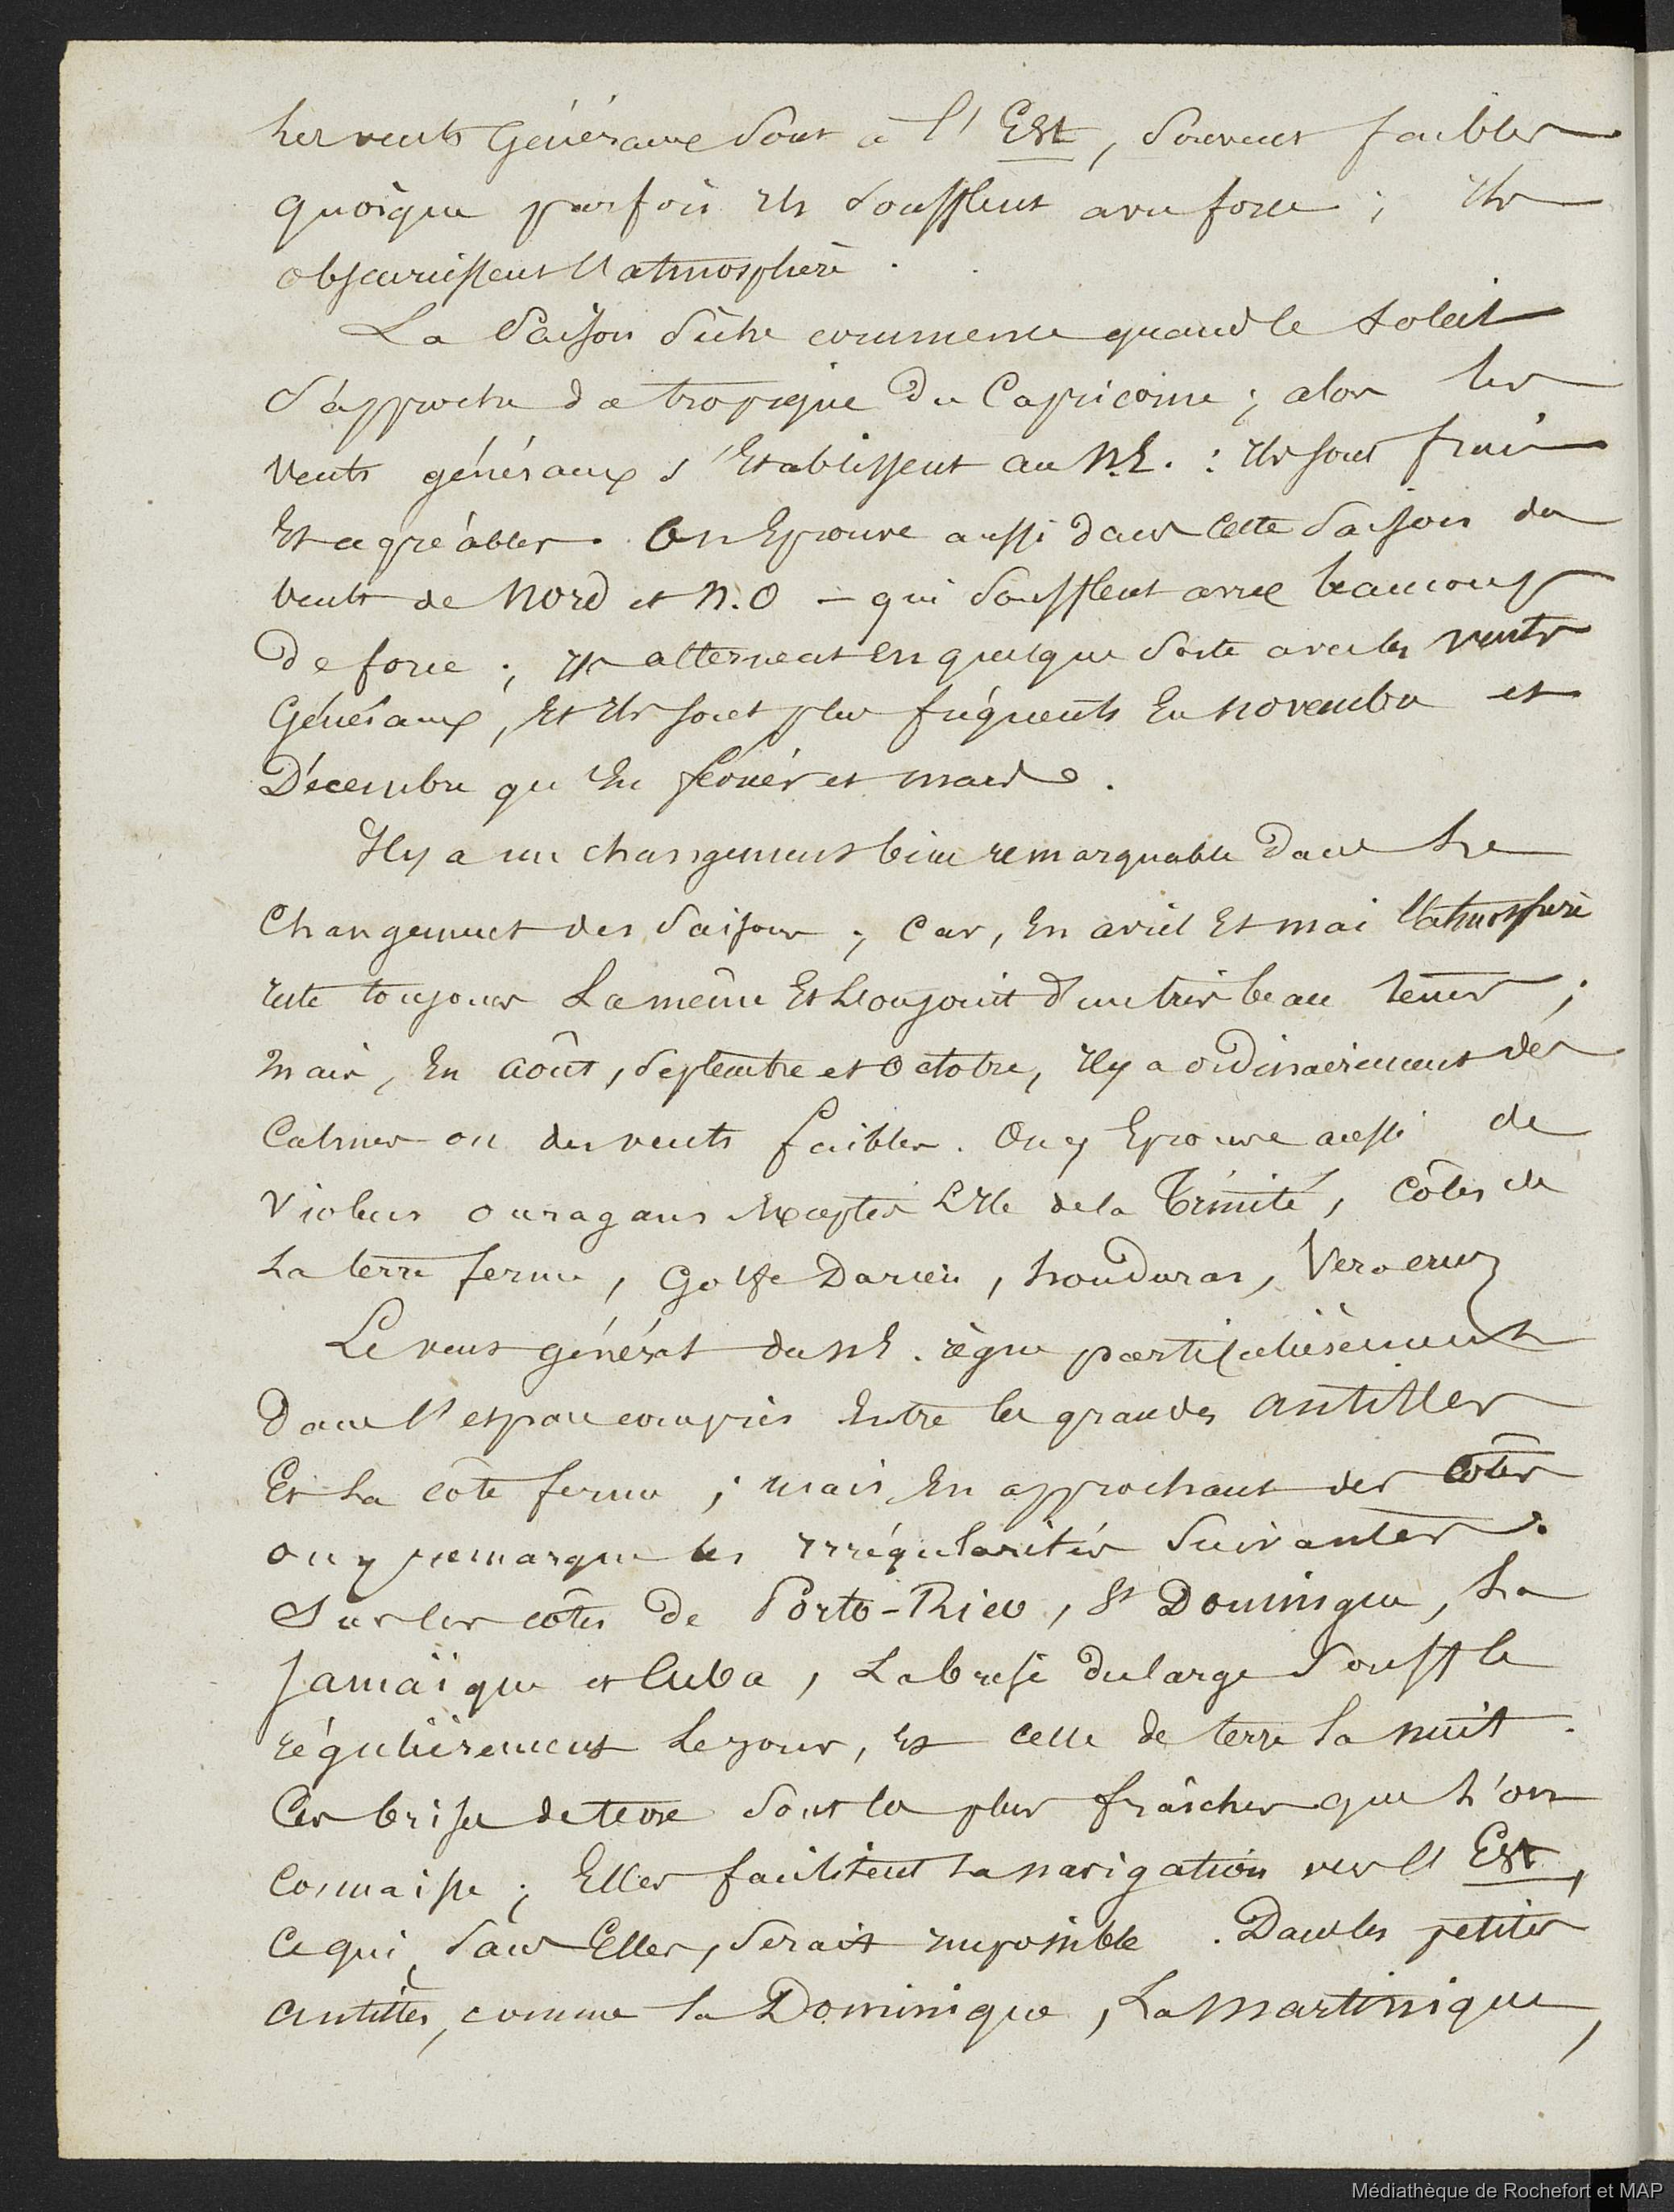 Les vents Généraux sont à l'Est, souvent faibles
quoique parfois ils soufflent avec force ; ils
obscurcissent l'atmosphère .
La saison sèche commence quand le soleil
s'approche du tropique du Capricorne ; alors les
vents généraux s'Etablissent au N.E. : ils sont frais
Et agréables . On Eprouve aussi dans Cette saison des
vents de Nord et N.O – qui soufflent avec beaucoup
de force ; ils alternent en quelque sorte avec les vents
Généraux , Et ils sont plus fréquents En novembre et
Décembre qu'En février et mars .
Il y a un changement bien remarquable dans le
Changement des saisons ; Car, En avril Et mai l'atmosphère
reste toujours la même Et l'on jouit d'un très beau tems ;
Mais, En août, septembre et Octobre, il y a ordinairement des
Calmes ou des vents faibles. On y Eprouve aussi de
Violens ouragans Exceptés L'Ile de la Trinité, Côtes de
La terre ferme , Golfe Darien , honduras, Vera cruz
Le vent général du NE. règne particulièrement
Dans l'espace compris Entre les grandes antilles
Et la côte ferme ; mais En approchant des côtes
on y remarque les irrégularités suivantes .
Sur les côtes de Porto-Rico, St Domingue, La
Jamaïque et Cuba , La brise du large souffle
régulièrement Le jour, Et celle de terre la nuit .
Ces brises de terre sont les plus fraîches que l'on
Connaisse ; Elles facilitent la navigation vers l'Est,
Ce qui, sans Elles, serait impossible . Dans les petites
antilles, comme la Dominique , La Martinique,
Médiathèque de Rochefort et MAP